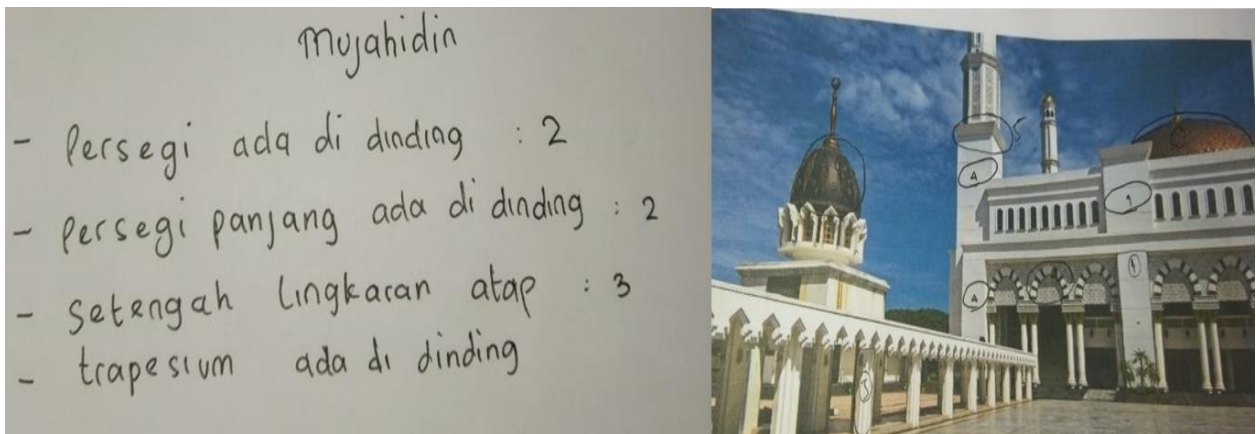 Mujahidin
- Persegi ada di dinding : 2
- Persegi panjang ada di dinding : 2
- Setengah lingkaran atap : 3
- trapesium ada di dinding